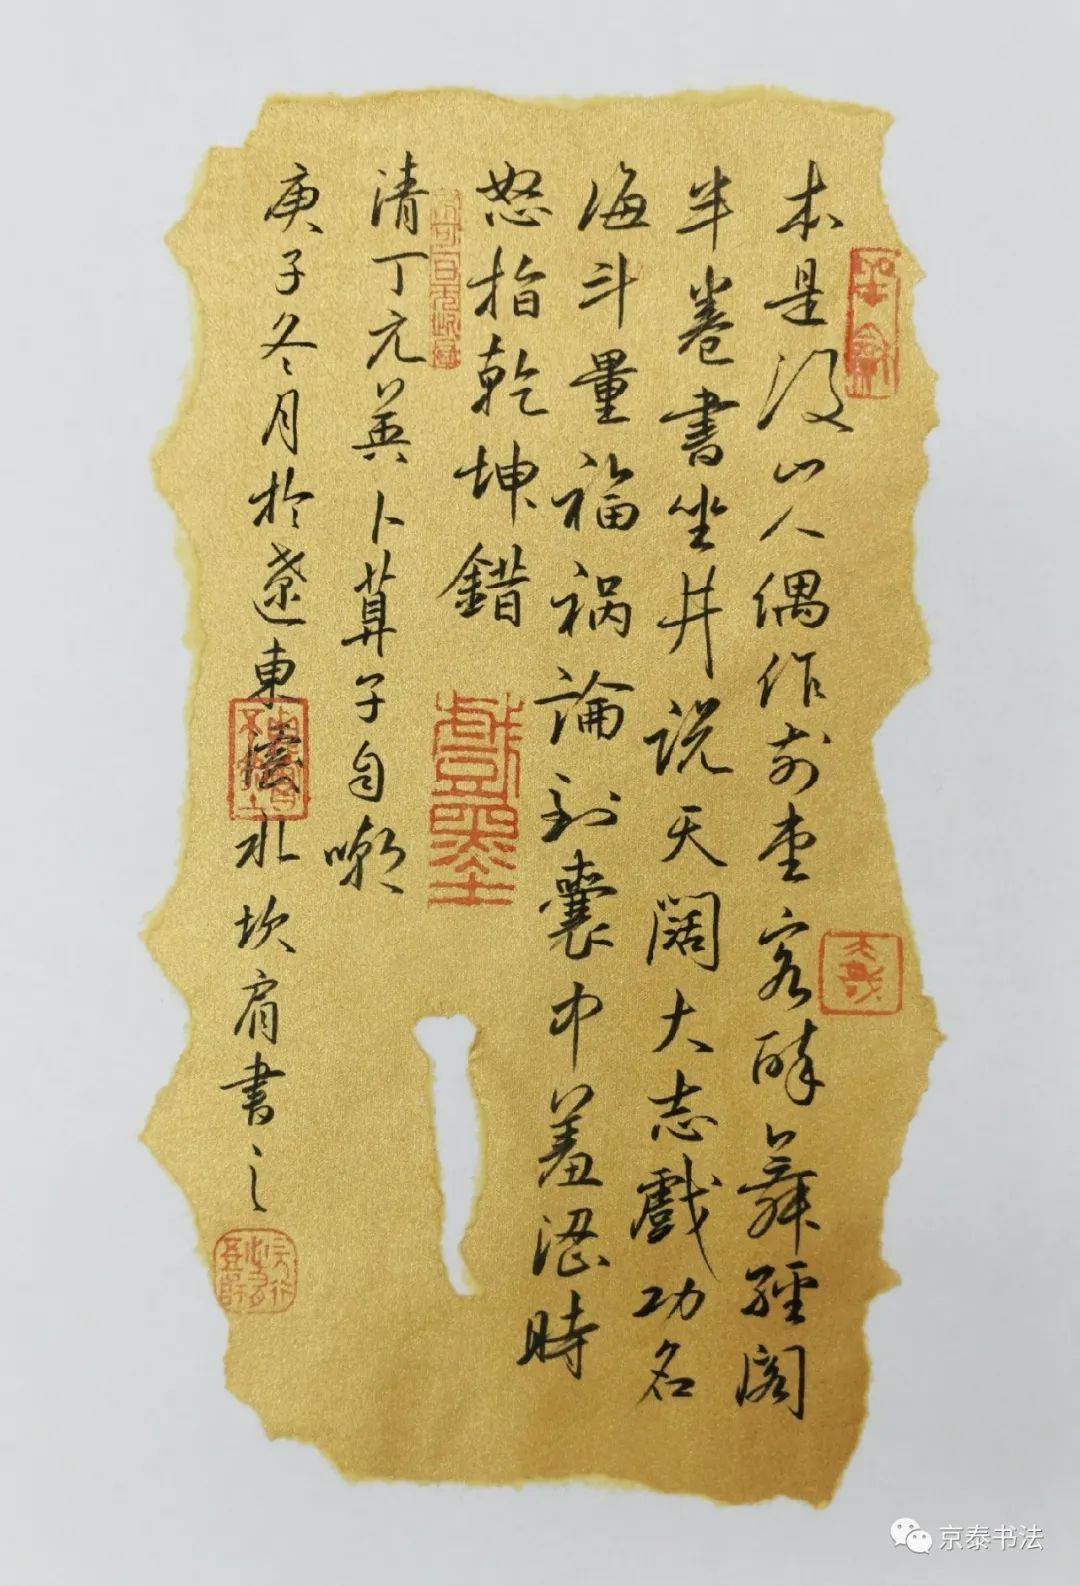 本是後山人偶作前堂客醉舞經閣
半卷書坐井説天闊大志戲功名
海斗量福祸論到囊中羞澀時
怒指乾坤錯
清丁元英卜算子自嘲
庚子冬月於遼東 坎肩書之
京泰书法